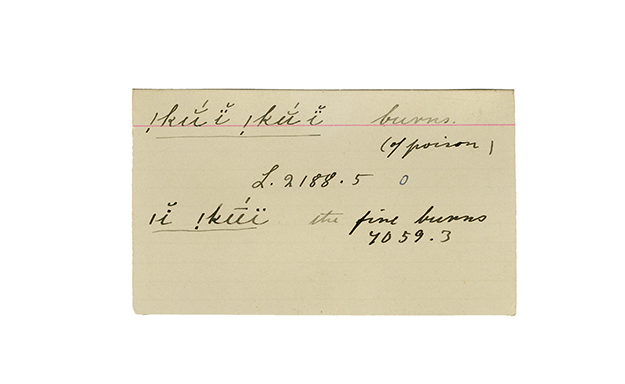 !kŭ́ ĭ̈ !kŭ́ ĭ̈ burns.
(of poison)
L. 2188.5 o
|ĭ̈ !kū̆́ï the fire burns
7059.3